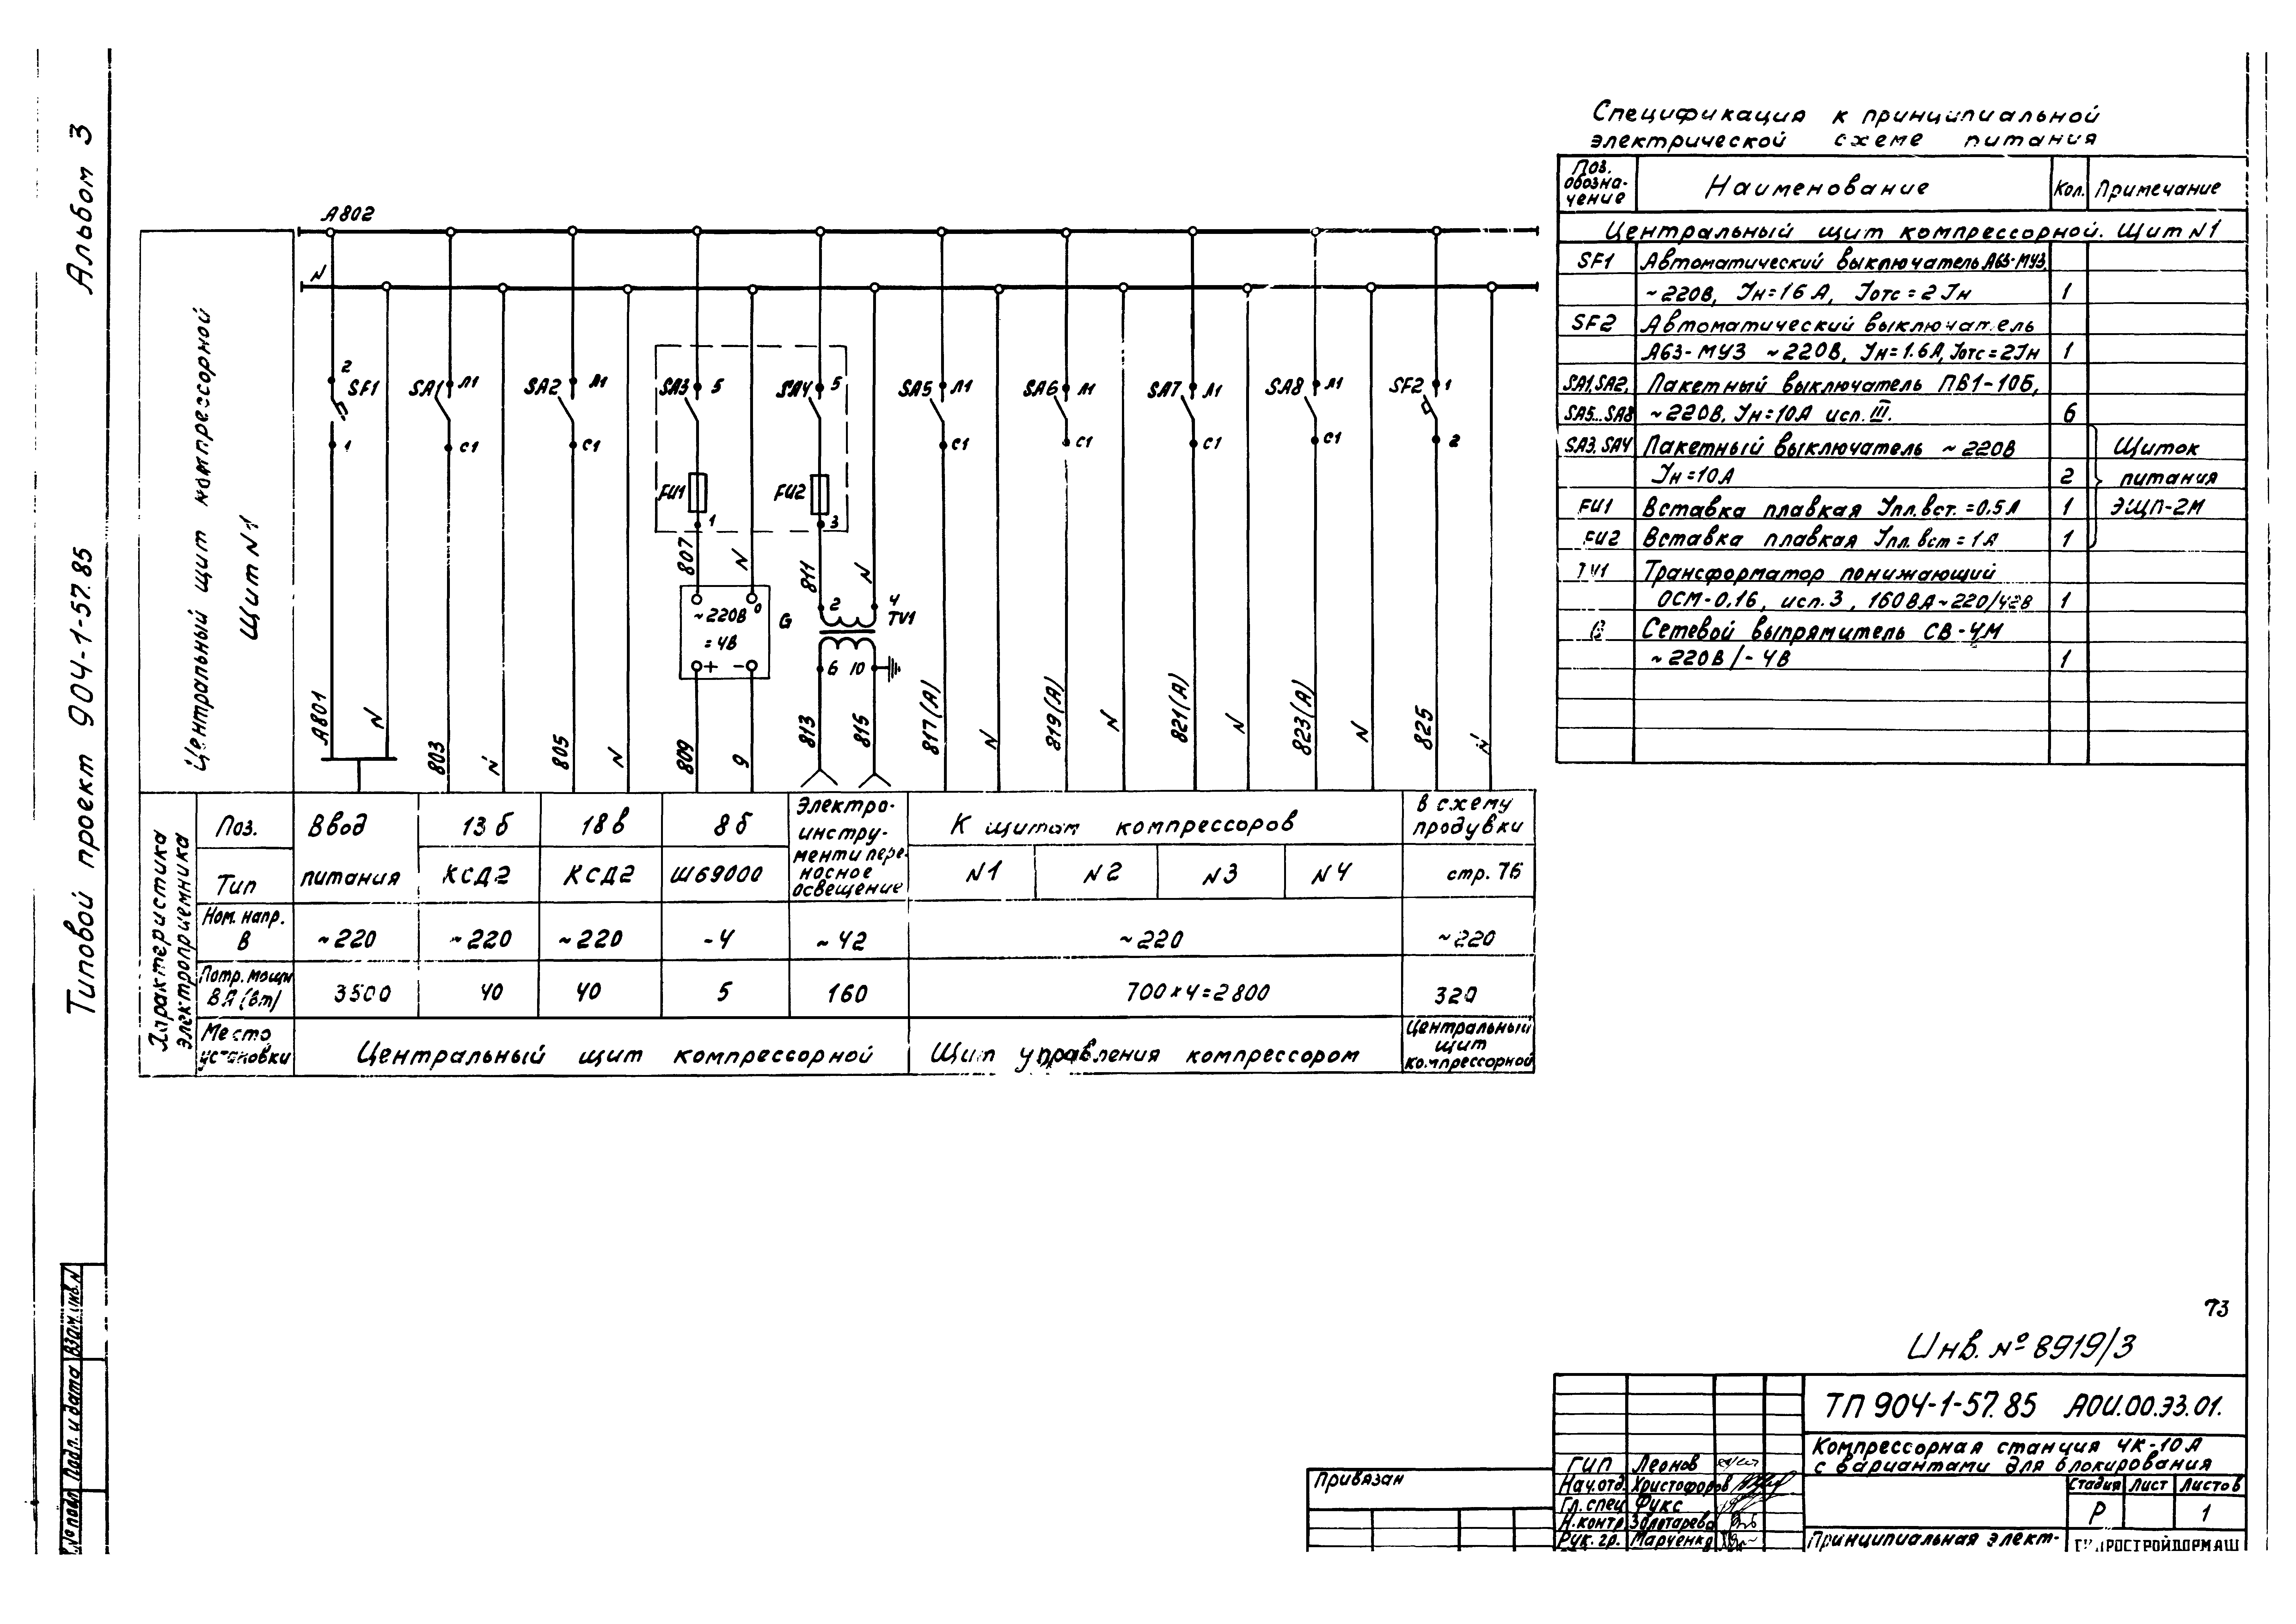 Альбом 3
Типовой проект 904-1-57.85
Взам. инв. N
Подп. и дата
Центральный щит компрессорной
Щит N1
А802
N
2
SF1
1
SA1
Л1
С1
SA2
Л1
С1
SA3
5
FU1
1
SA4
5
FU2
3
SA5
Л1
С1
SA6
Л1
С1
SA7
Л1
С1
SA8
Л1
С1
SF2
1
2
807
N
811
N
~220В
0
=4В
+ -
G
2
4
TV1
6
10
А801
N
803
N
805
N
809
9
813
815
817(А)
N
819(А)
N
821(А)
N
823(А)
N
825
N
Характеристика
электроприемника
Поз.
Тип
Ном. напр.
В
Потр. мощн
ВА (вт)
Место
установки
Ввод
питания
~220
3500
13б
КСД2
~220
40
18в
КСД2
~220
40
8б
Ш69000
-4
5
Электро-
инстру-
мент и пере-
носное
освещение
~42
160
К щитам компрессоров
N1
N2
N3
N4
~220
700×4=2800
В схему
продувки
стр. 76
~220
320
Центральный щит компрессорной
Щит управления компрессором
Центральный
щит
компрессорной
Спецификация к принципиальной
электрической схеме питания
Поз.
обозна-
чение
Наименование
Кол.
Примечание
Центральный щит компрессорной. Щит N1
SF1 Автоматический выключатель А63-МУ3,
~220В, Iн=1.6А, Iотс=2Iн 1
SF2 Автоматический выключатель
А63-МУ3 ~220В, Iн=1.6А, Iотс=2Iн 1
SA1, SA2, Пакетный выключатель ПВ1-10Б,
SA5...SA8 ~220В, Iн=10А исп. III. 6
SA3, SA4 Пакетный выключатель ~220В Щиток
Iн=10А 2 питания
FU1 Вставка плавкая Iпл.вст.=0,5А 1 ЭЩП-2М
FU2 Вставка плавкая Iпл.вст=1А 1
TV1 Трансформатор понижающий
ОСМ-0.16, исп. 3, 160ВА~220/42В 1
Сетевой выпрямитель СВ-4М
~220В/-4В 1
73
Инв. № 8919/3
ТП 904-1-57.85 АОИ.00.ЭЗ.01.
Компрессорная станция 4К-10А
с вариантами для блокирования
Стадия Лист Листов
Р 1
Принципиальная элект-
ГИПРОСТРОЙДОРМАШ
ГИП Леонов
Нач.отд. Христофоров
Гл.спец Фукс
Н.контр Золотарева
Рук. гр. Марченко
Привязан